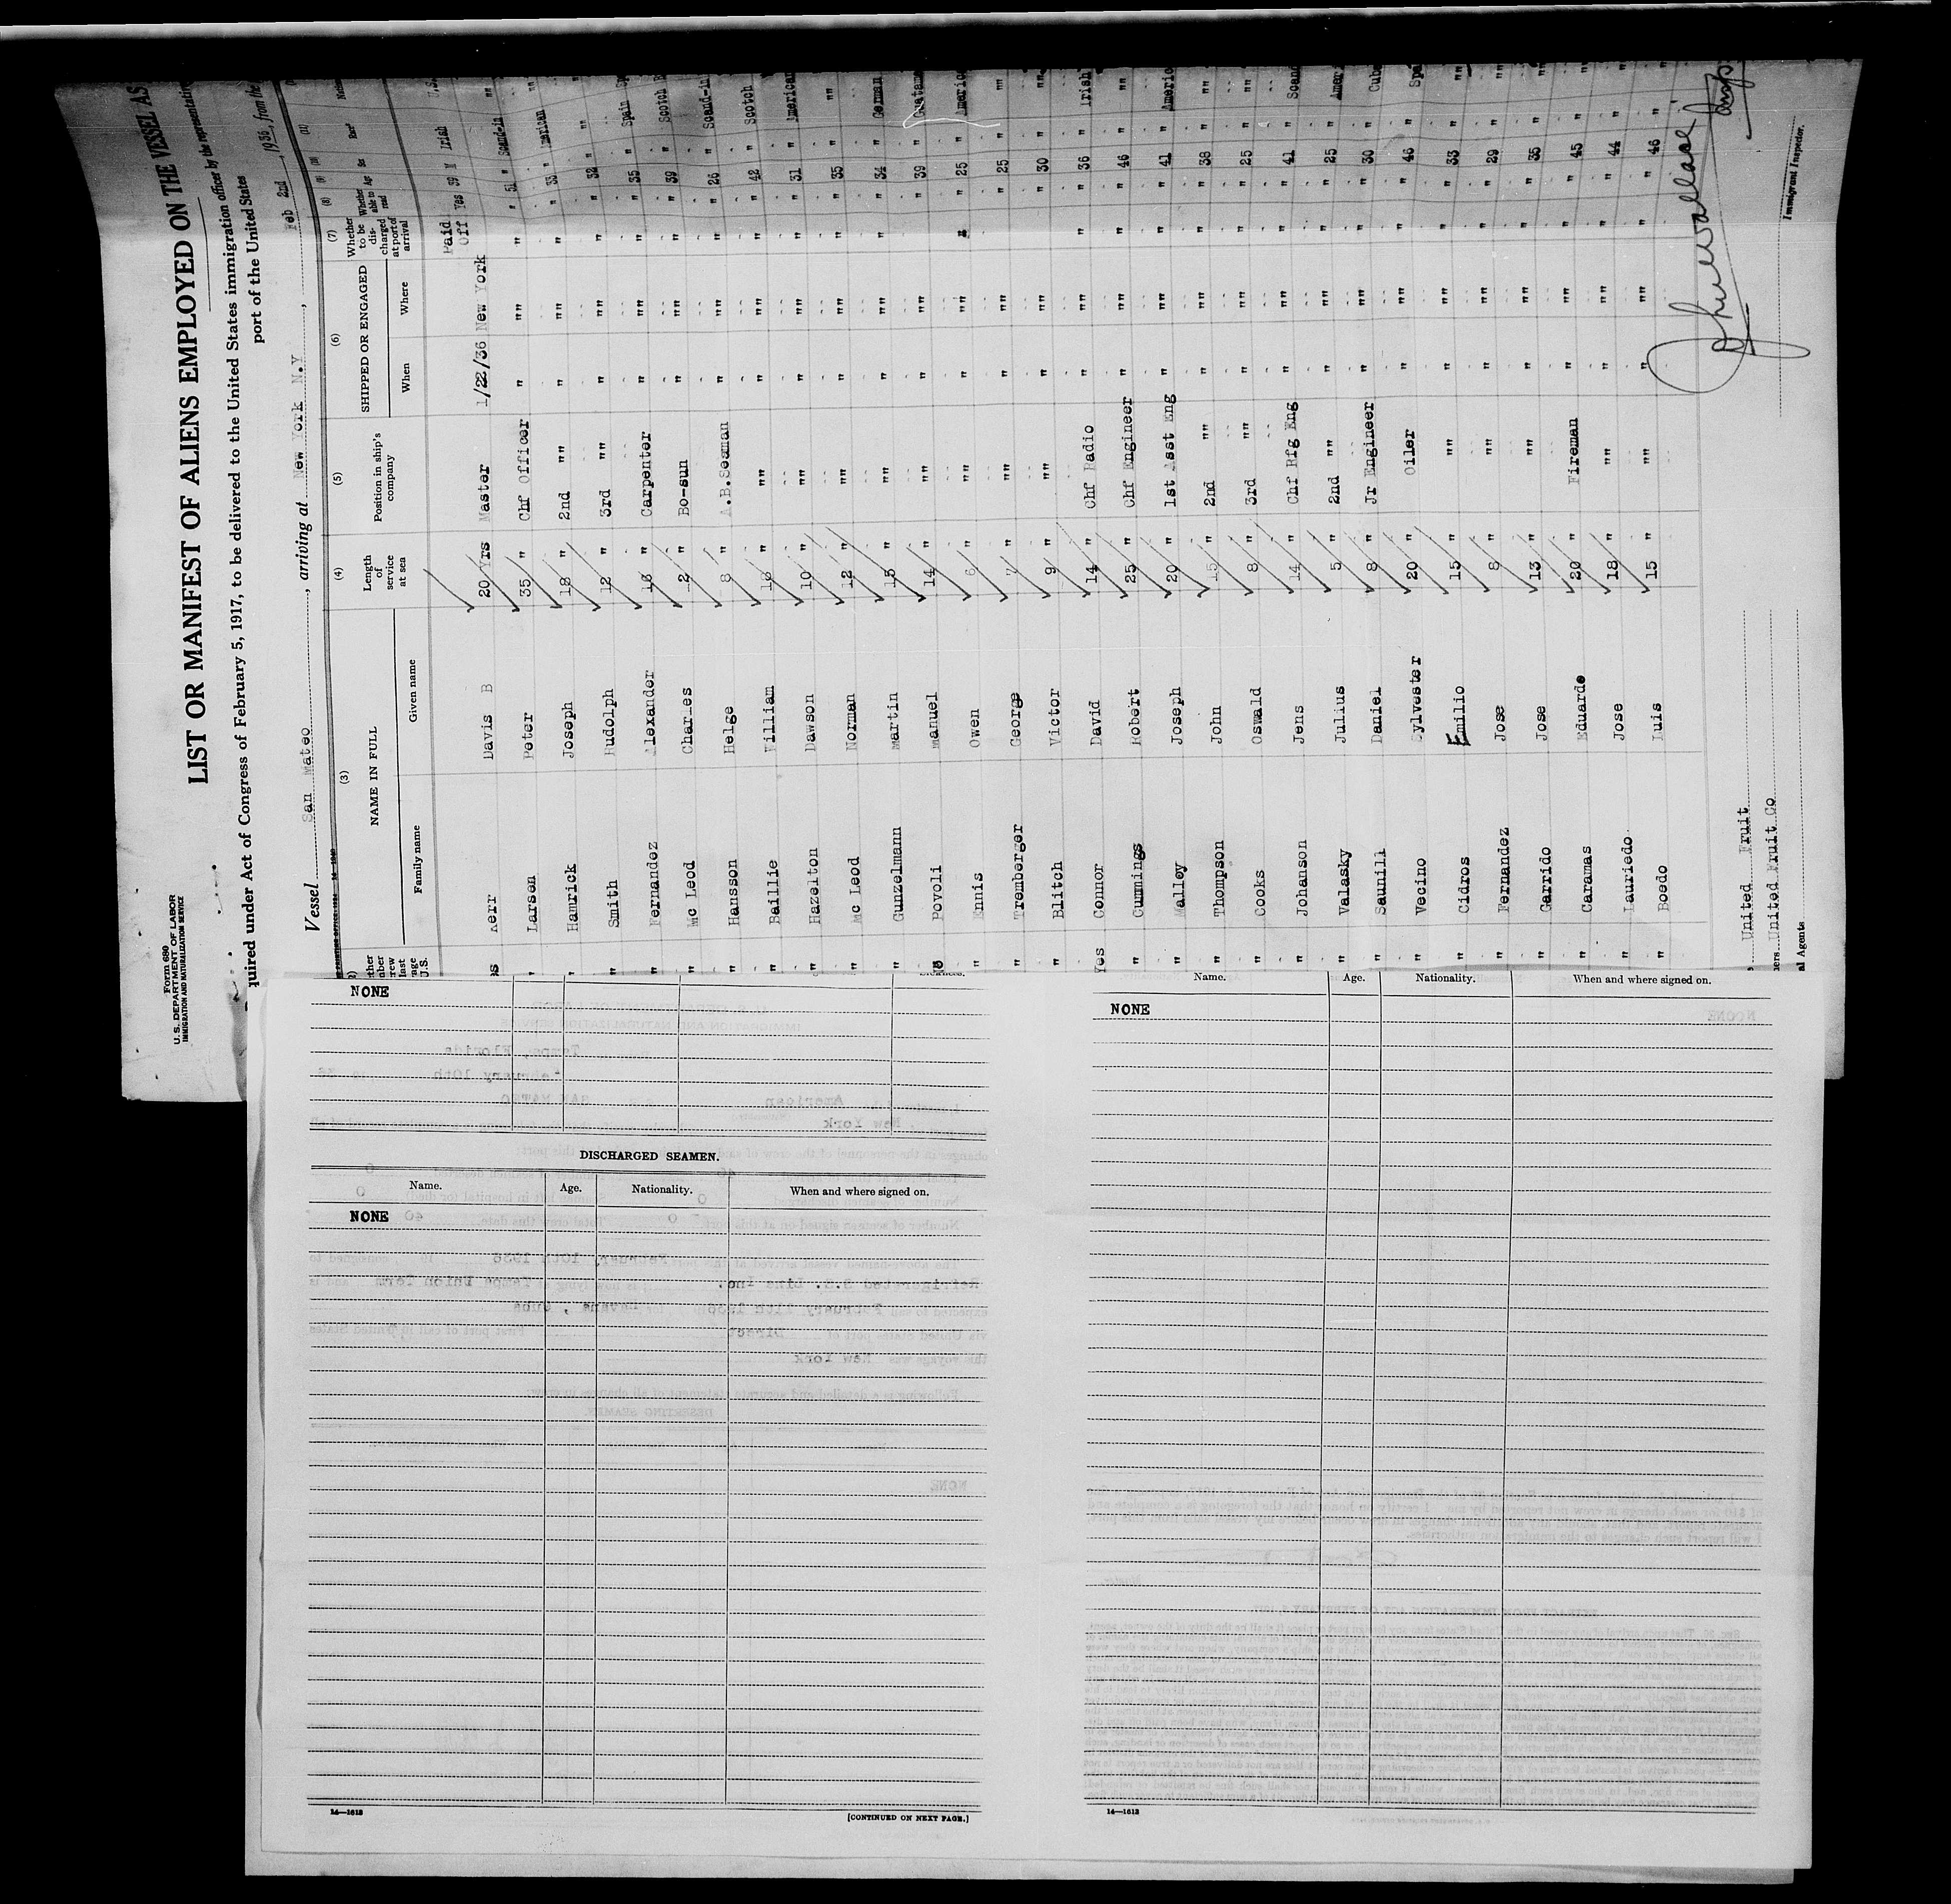 Form 680
U. S. DEPARTMENT OF LABOR
IMMIGRATION AND NATURALIZATION SERVICE
LIST OR MANIFEST OF ALIENS EMPLOYED ON THE VESSEL AS
quired under Act of Congress of February 5, 1917, to be delivered to the United States immigration officer by the representative
port of the United States
Vessel San Mateo, arriving at New York N.Y, Feb 2nd, 1936, from the
(3) (4) (5) (6) (7) (8) (9) (10) (11)
NAME IN FULL Length of service at sea Position in ship's company SHIPPED OR ENGAGED Whether to be discharged at port of arrival Whether able to read Age Sex Race
Family name Given name When Where
Kerr Davis B 20 Yrs Master 1/22/36 New York Paid Off Yes 39 M Irish U.S.
" Larsen Peter 35 " Chf Officer " "" " " 51 " Scand-in ""
" Hamrick Joseph 18 " 2nd "" " "" " " 33 " American
" Smith Rudolph 12 " 3rd "" " "" " " 32 " ""
" Fernandez Alexander 16 " Carpenter " "" " " 35 " Spain
" Mc Leod Charles 12 " Bo-sun " "" " " 39 " Scotch
" Hansson Helge 8 " A.B.Seaman " "" " " 26 " Scand-in
" Baillie William 18 " "" " "" " " 42 " Scotch
" Hazelton Dawson 10 " "" " "" " " 31 " American
" Mc Leod Norman 12 " "" " "" " " 35 " ""
" Gunzelmann Martin 15 " "" " "" " " 34 " German
" Povoli Manuel 14 " "" " "" " 39 "
" Ennis Owen 6 " "" " "" " " 25 " America
" Tremberger George 7 " "" " "" " 25 " ""
" Blitch Victor 9 " "" " "" " 30 " ""
Yes Connor David 14 " Chf Radio " "" " " 36 " Irish
" Cummings Robert 25 " Chf Engineer " "" " " 46 " ""
" Malley Joseph 20 " 1st Asst Eng " "" " " 41 " Americ
" Thompson John 15 " 2nd "" " "" " " 38 " ""
" Cooks Oswald 8 " 3rd "" " "" " " 25 " ""
" Johanson Jens 14 " Chf Rfg Eng " "" " " 41 " Scand
" Valasky Julius 5 " 2nd "" " "" " " 25 " Ameri
" Saunill Daniel 8 " Jr Engineer " "" " " 30 " Cuba
" Vecino Sylvester 20 " Oiler " "" " " 46 " Spa
" Cidros Emilio 15 " "" " "" " " 33 " ""
" Fernandez Jose 8 " "" " "" " " 29 " ""
" Garrido Jose 13 " "" " "" " " 35 " ""
" Caramas Eduardo 20 " Fireman " "" " " 45 " ""
" Lauriedo Jose 18 " "" " "" " " 44 " ""
" Boedo Luis 15 " "" " "" " " 46 " ""
United Fruit
United Fruit Co
al Agents
Immigrant Inspector.
NONE
DISCHARGED SEAMEN.
Name. Age. Nationality. When and where signed on.
NONE
14—1613
[CONTINUED ON NEXT PAGE.]
Name. Age. Nationality. When and where signed on.
NONE
14—1613